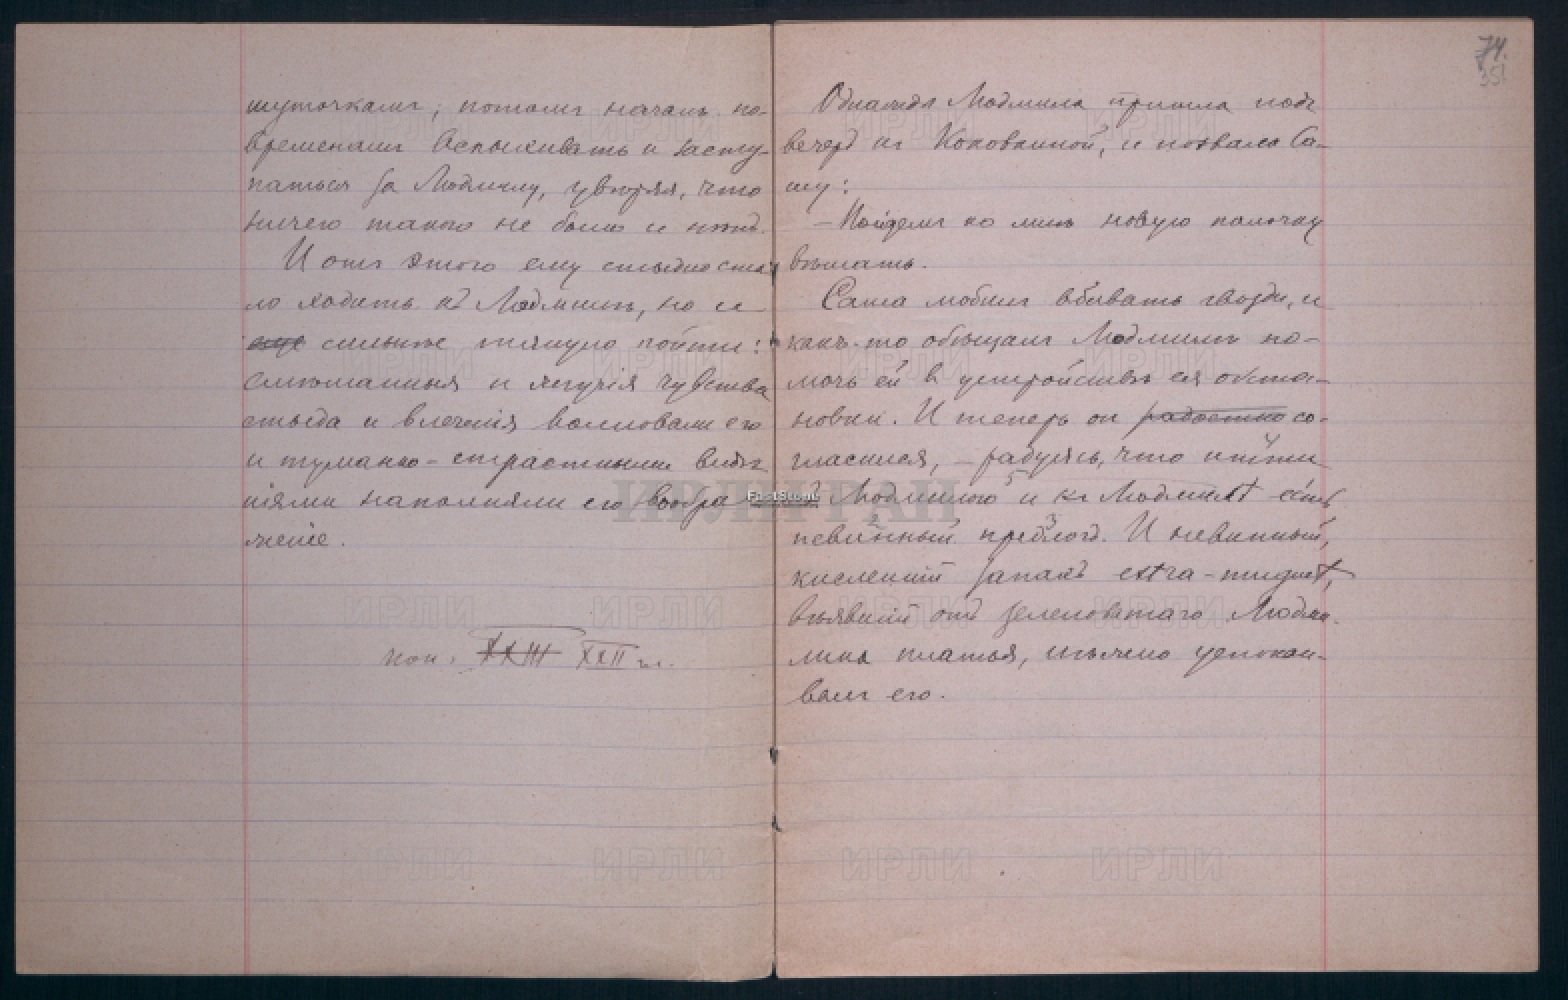 шуточками; потомъ началъ по-
временамъ вспыхивать и засту-
паться за Людмилу, увѣряя, что
ничего такого не было и нѣтъ.
И отъ этого ему стыдно ста-
ло ходить къ Людмилѣ, но и
еще сильнѣе тянуло пойти:
смѣшанныя и жгучія чувства
стыда и влеченія волновали его
и туманно-страстными видѣ
ніями наполняли его вообра
женіе.
кон. XXIII XXII гл.
74.
351
Однажды Людмила пришла подъ
вечеръ къ Коковкиной, и позвала Са-
шу:
– Пойдемъ ко мнѣ новую полочку
вѣшать.
Саша любилъ вбивать гвозди, и
какъ-то обѣщалъ Людмилѣ по-
мочь ей въ устройствѣ ея обста-
новки. И теперь онъ радостно со-
гласился, – радуясь, что идти
съ Людмилою и къ Людмилѣ есть
невинный предлогъ. И невинный,
кисленькій запахъ extra-muguet,
вѣявшій отъ зеленоватаго Людми-
лина платья, нѣжно успокаи-
валъ его.
ИРЛИ РАН
ИРЛИ